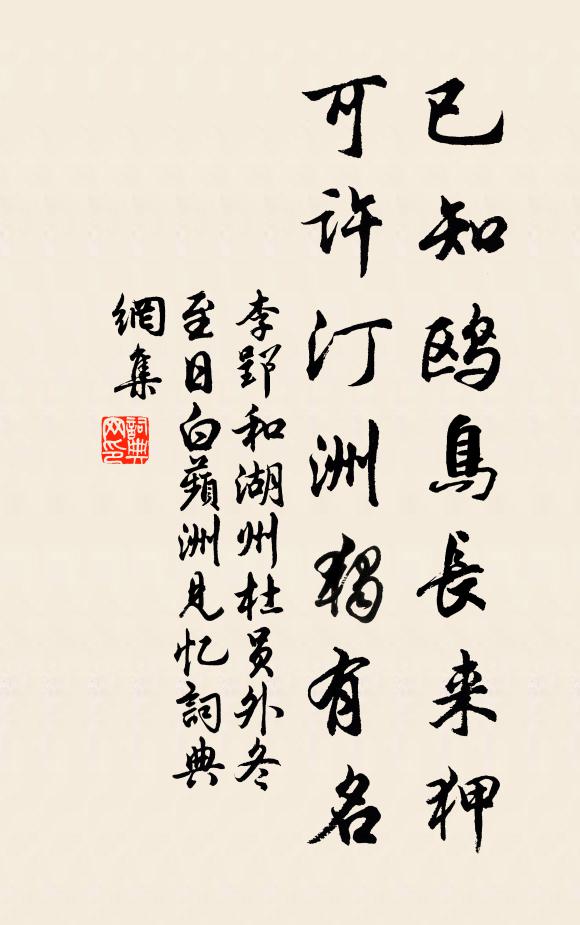 已知鸥鳥長来狎
可許汀洲獨有名
李郢和湖州杜员外冬
至日白蘋洲見忆詞典
網集
詞典
网印